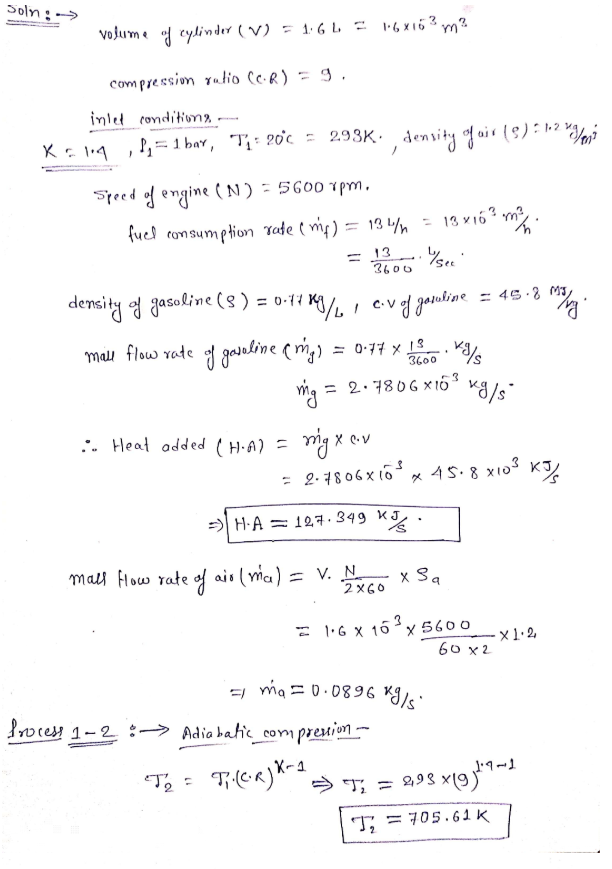 Soln :→
volume of cylinder (V) = 1.6 L = 1.6×10⁻³ m³
compression ratio (C.R) = 9.
inlet conditions —
K = 1.4 , P₁ = 1 bar, T₁ = 20°C = 293K. , density of air (ρ) = 1.2 kg/m³
Speed of engine (N) = 5600 rpm.
fuel consumption rate (ṁf) = 13 L/h = 13 × 10⁻³ m³/h.
= 13/3600 . L/sec.
density of gasoline (ρ) = 0.77 Kg/L , c.v of gasoline = 45.8 MJ/kg.
mass flow rate of gasoline (ṁg) = 0.77 × 13/3600 . Kg/s
ṁg = 2.7806 × 10⁻³ Kg/s.
∴ Heat added (H.A) = ṁg × c.v
= 2.7806×10⁻³ × 45.8 ×10³ KJ/s
⇒ H.A = 127.349 KJ/s .
mass flow rate of air (ṁa) = V. N/2×60 × ρa
= 1.6 × 10⁻³ × 5600/60×2 × 1.2
⇒ ṁa = 0.0896 Kg/s.
Process 1-2 :→ Adiabatic compression —
T₂ = T₁.(C.R)^K-1 ⇒ T₂ = 293 ×(9)^1.4-1
T₂ = 705.61 K